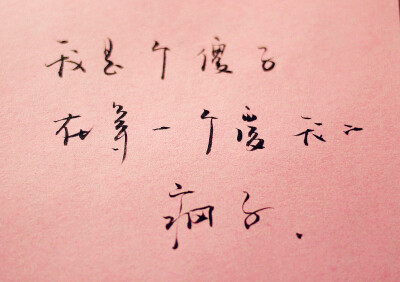 我是个傻子
在等一个爱我的
疯子、